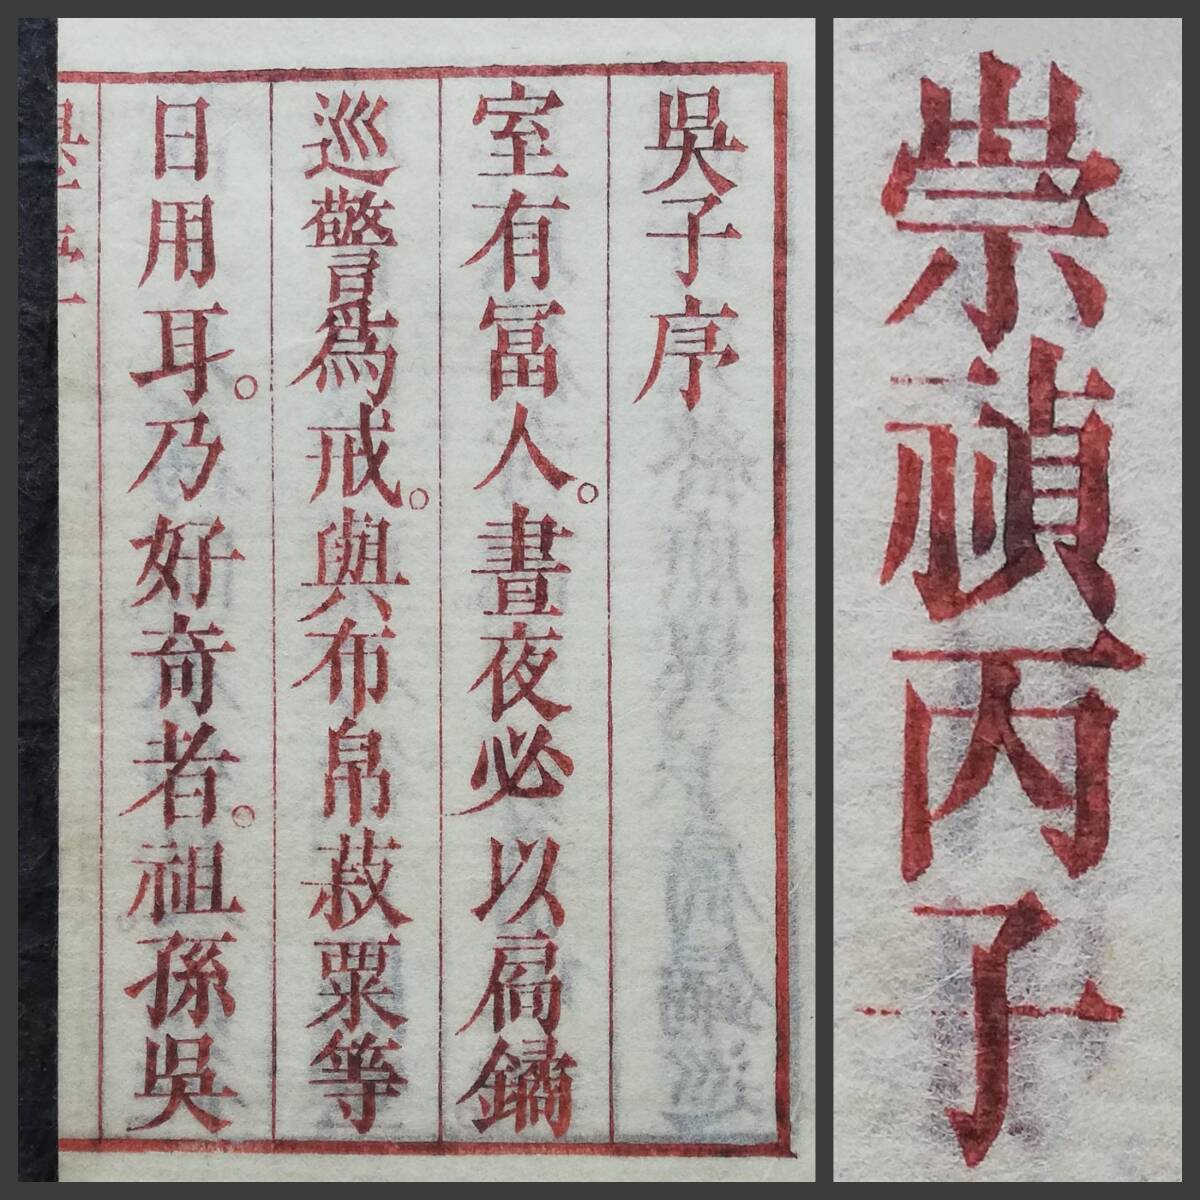 吳子序
室有冨人。晝夜必以扃鐍
巡警爲戒。與布帛菽粟等
日用耳。乃好奇者。祖孫吳
崇禎丙子